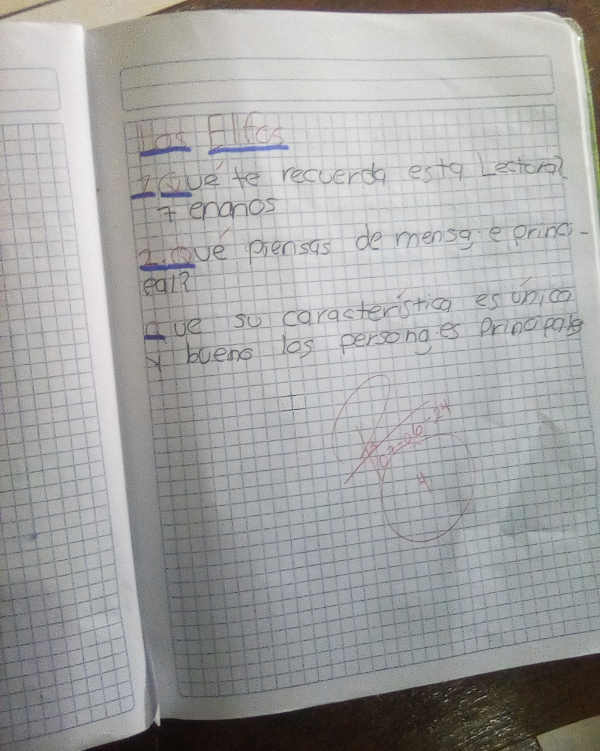 Los Elfos
1. Qué te recuerda esta Lectora?
7 enanos
2. Qué piensas de mensaje princi-
pal?
Que su característica es único
y bueno los personajes principales
03-06-24
A